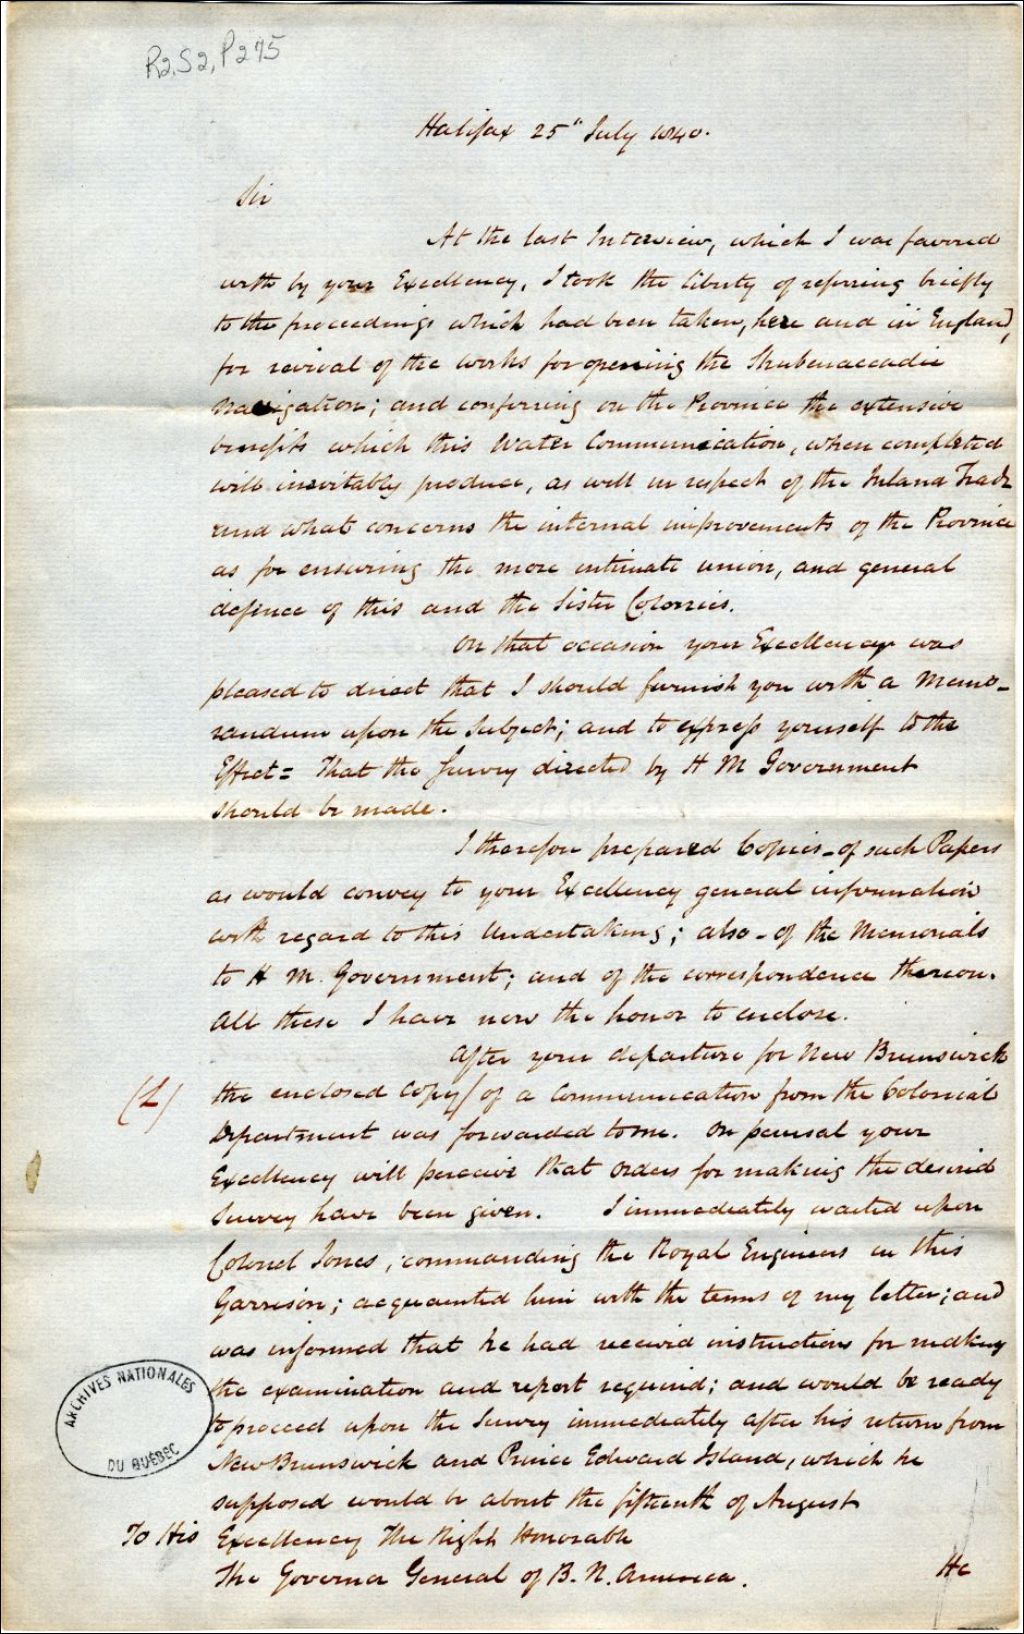 R2,S2,P275
Halifax 25" July 1840.
Sir
At the last Interview, which I was favored
with by your Excellency, I took the liberty of referring briefly
to the proceedings which had been taken, here and in England,
for revival of the works for opening the Shubenaccadie
Navigation; and conferring on the Province the extensive
benefits which this Water Communication, when completed
will inevitably produce, as well in respect of the Inland Trade
and what concerns the internal improvements of the Province
as for ensuring the more intimate union, and general
defence of this and the Sister Colonies.
On that occasion your Excellency was
pleased to direct that I should furnish you with a Memo-
randum upon the Subject; and to express yourself to the
Effect= That the Survey directed by H M Government
should be made.
I therefore prepared Copies - of such Papers
as would convey to your Excellency general information
with regard to this Undertaking; also - of the Memorials
to H M. Government; and of the correspondence thereon.
All these I have now the honor to enclose.
After your departure for New Brunswick
(L) the enclosed Copy/ of a Communication from the Colonial
Department was forwarded to me. On perusal your
Excellency will perceive that orders for making the desired
Survey have been given. I immediately waited upon
Colonel Jones, commanding the Royal Engineers in this
Garrison; acquainted him with the terms of my letter; and
was informed that he had received instructions for making
the examination and report required; and would be ready
to proceed upon the Survey immediately after his return from
New Brunswick and Prince Edward Island, which he
supposed would be about the fifteenth of August
To His Excellency The Right Honorable
The Governor General of B. N. America.
He
ARCHIVES NATIONALES
DU QUÉBEC